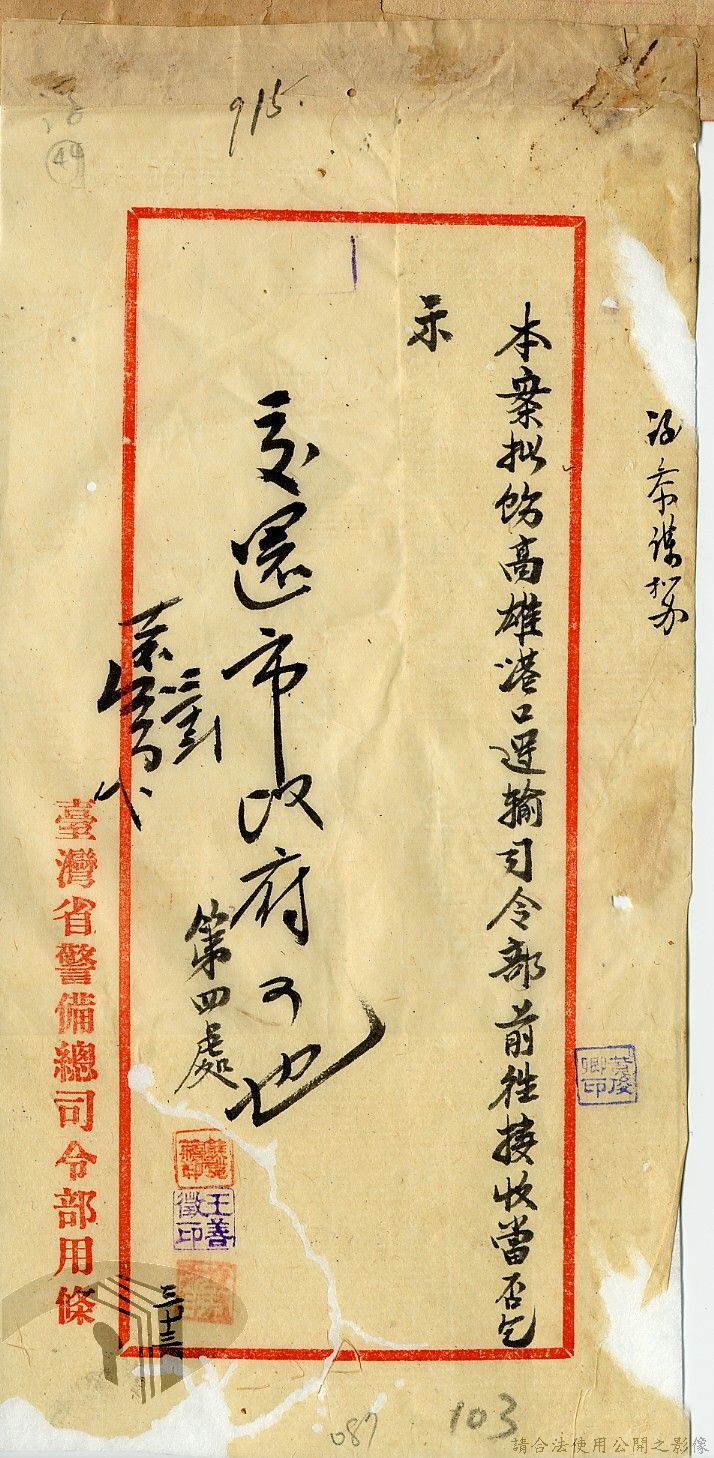 915.
44
本案拟飭高雄港口運輸司令部前往接收當否乞
示
交還市政府可也
第四處
王善徵印
葉俊卿印
臺灣省警備總司令部用條
087
103
請合法使用公開之影像